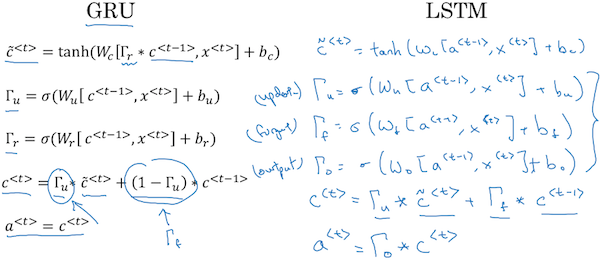 GRU
c̃<t> = tanh(Wc[Γr * c<t−1>, x<t>] + bc)
Γu = σ(Wu[ c<t−1>, x<t>] + bu)
Γr = σ(Wr[ c<t−1>, x<t>] + br)
c<t> = Γu * c̃<t> + (1 − Γu) * c<t−1>
Γf
a<t> = c<t>
LSTM
c̃<t> = tanh(Wc[a<t-1>, x<t>] + bc)
(update) Γu = σ(Wu[a<t-1>, x<t>] + bu)
(forget) Γf = σ(Wf[a<t-1>, x<t>] + bf)
(output) Γo = σ(Wo[a<t-1>, x<t>] + bo)
c<t> = Γu * c̃<t> + Γf * c<t-1>
a<t> = Γo * c<t>